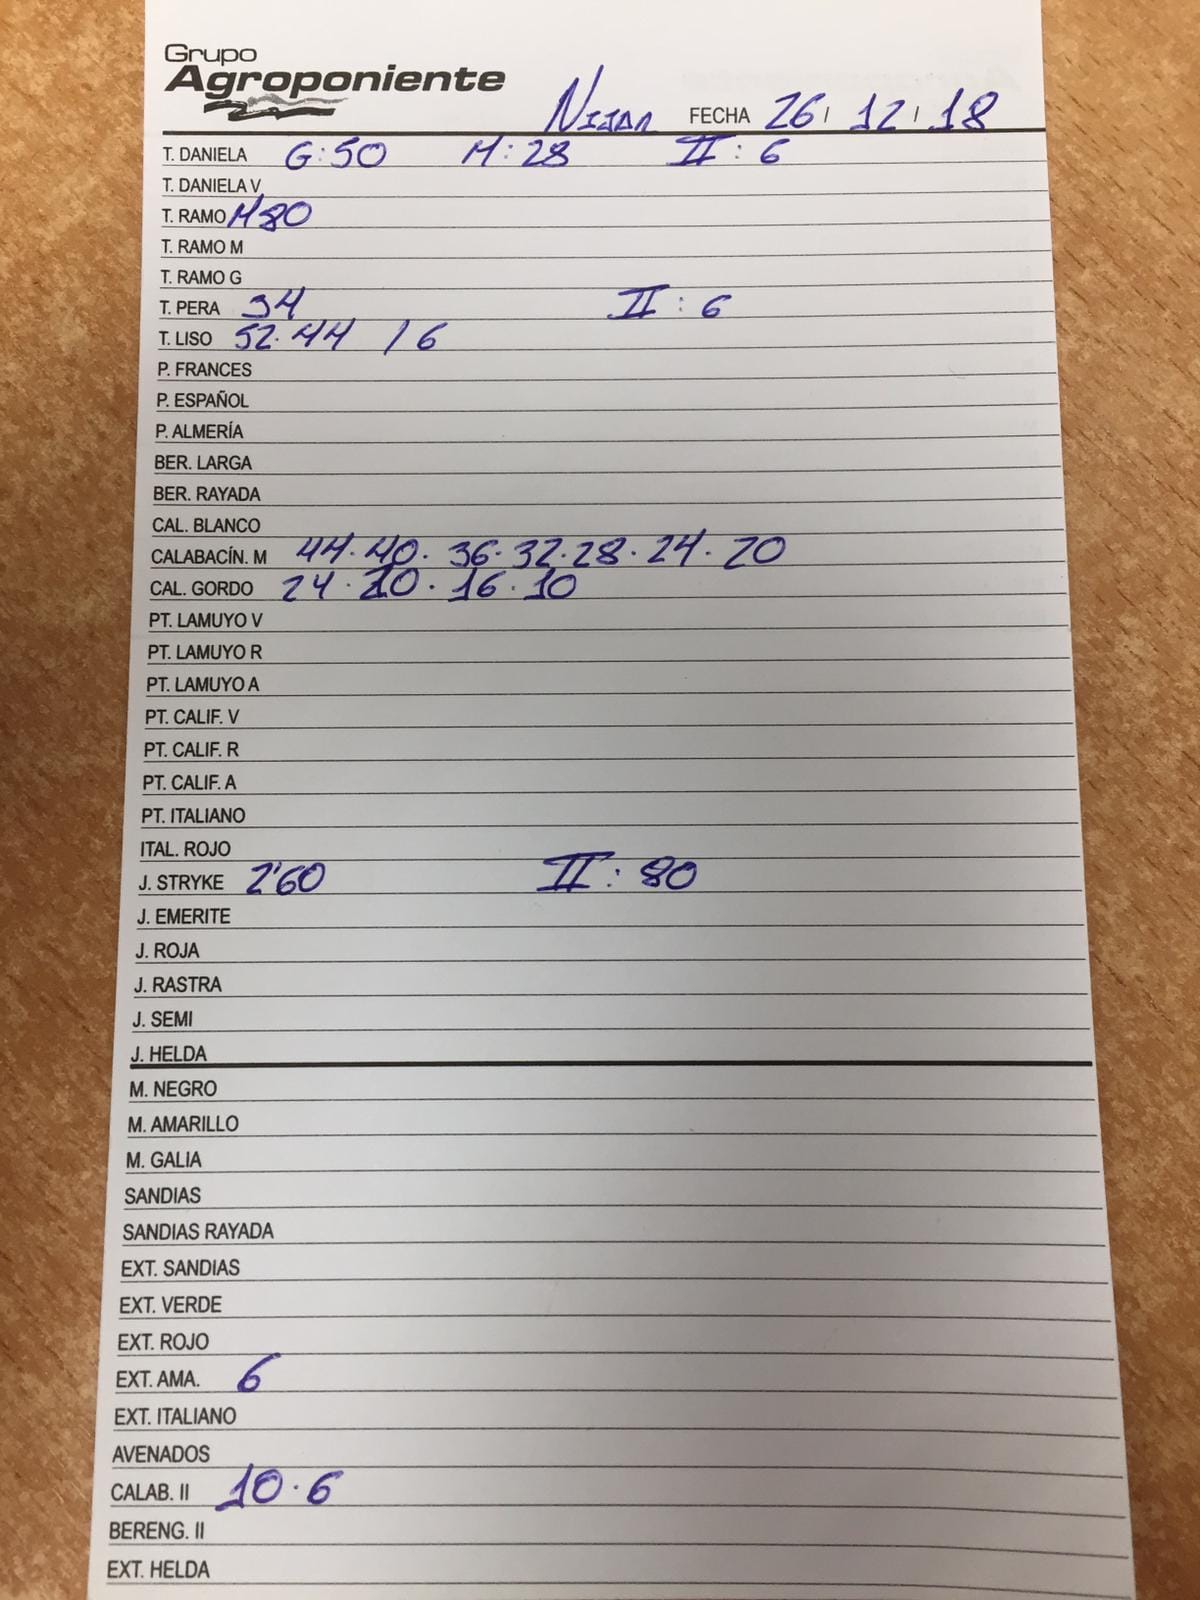 Grupo
Agroponiente
Nijar FECHA 26 / 12 / 18
T. DANIELA G:50 M:28 II:6
T. DANELA V
T. RAMO M80
T. RAMO M
T. RAMO G
T. PERA 34 II:6
T. LISO 52·44 / 6
P. FRANCES
P. ESPAÑOL
P. ALMERÍA
BER. LARGA
BER. RAYADA
CAL. BLANCO
CALABACÍN. M 44·40·36·32·28·24·20
CAL. GORDO 24·20·16·10
PT. LAMUYO V
PT. LAMUYO R
PT. LAMUYO A
PT. CALIF. V
PT. CALIF. R
PT. CALIF. A
PT. ITALIANO
ITAL. ROJO
J. STRYKE 2'60 II:80
J. EMERITE
J. ROJA
J. RASTRA
J. SEMI
J. HELDA
M. NEGRO
M. AMARILLO
M. GALIA
SANDIAS
SANDIAS RAYADA
EXT. SANDIAS
EXT. VERDE
EXT. ROJO
EXT. AMA. 6
EXT. ITALIANO
AVENADOS
CALAB. II 10·6
BERENG. II
EXT. HELDA